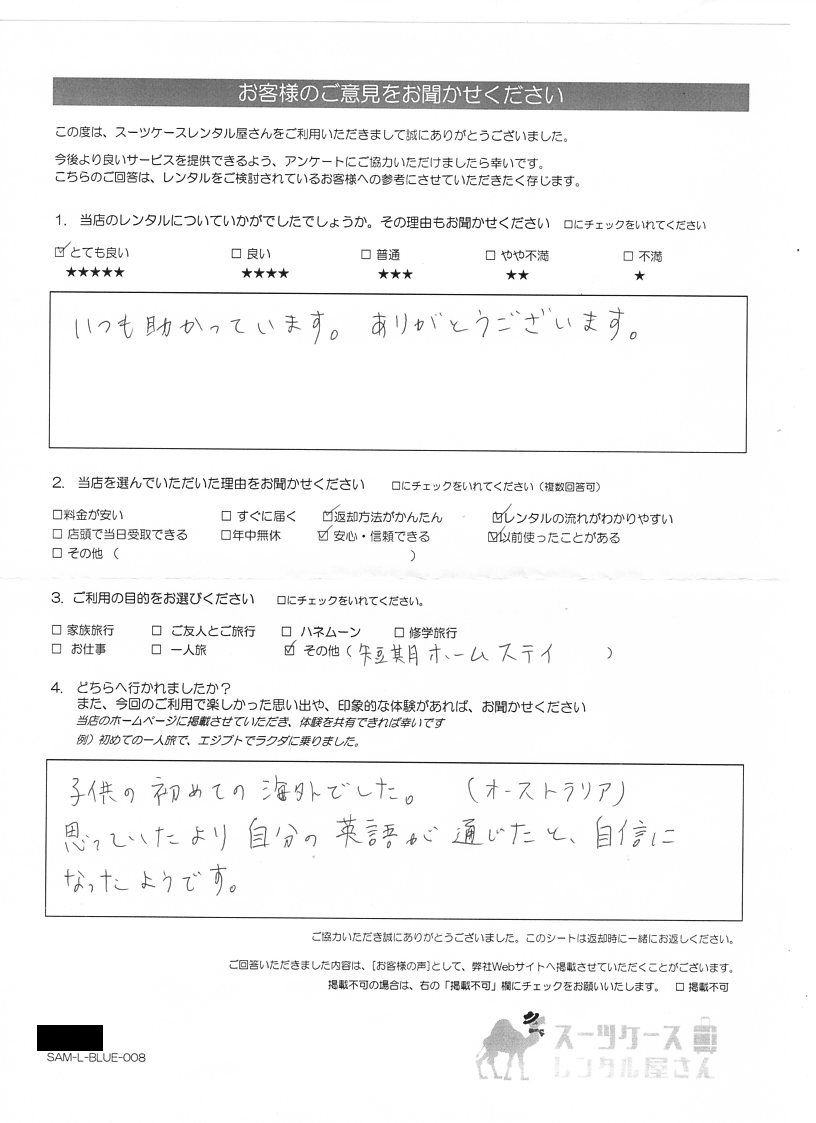 お客様のご意見をお聞かせください
この度は、スーツケースレンタル屋さんをご利用いただきまして誠にありがとうございました。
今後より良いサービスを提供できるよう、アンケートにご協力いただけましたら幸いです。
こちらのご回答は、レンタルをご検討されているお客様への参考にさせていただきたく存じます。
1. 当店のレンタルについていかがでしたでしょうか。その理由もお聞かせください □にチェックをいれてください
☑とても良い □ 良い □ 普通 □ やや不満 □ 不満
★★★★★ ★★★★ ★★★ ★★ ★
いつも助かっています。 ありがとうございます。
2. 当店を選んでいただいた理由をお聞かせください □にチェックをいれてください（複数回答可）
□料金が安い □ すぐに届く ☑返却方法がかんたん ☑レンタルの流れがわかりやすい
□ 店頭で当日受取できる □年中無休 ☑ 安心・信頼できる ☑以前使ったことがある
□ その他（ ）
3. ご利用の目的をお選びください □にチェックをいれてください。
□ 家族旅行 □ ご友人とご旅行 □ ハネムーン □ 修学旅行
□ お仕事 □ 一人旅 ☑ その他（短期ホームステイ ）
4. どちらへ行かれましたか？
また、今回のご利用で楽しかった思い出や、印象的な体験があれば、お聞かせください
当店のホームページに掲載させていただき、体験を共有できれば幸いです
例）初めての一人旅で、エジプトでラクダに乗りました。
子供の初めての海外でした。 （オーストラリア）
思っていたより自分の英語が通じたと、自信に
なったようです。
ご協力いただき誠にありがとうございました。このシートは返却時に一緒にお返しください。
ご回答いただきました内容は、[お客様の声]として、弊社Webサイトへ掲載させていただくことがございます。
掲載不可の場合は、右の「掲載不可」欄にチェックをお願いいたします。 □ 掲載不可
SAM-L-BLUE-008
スーツケース
レンタル屋さん